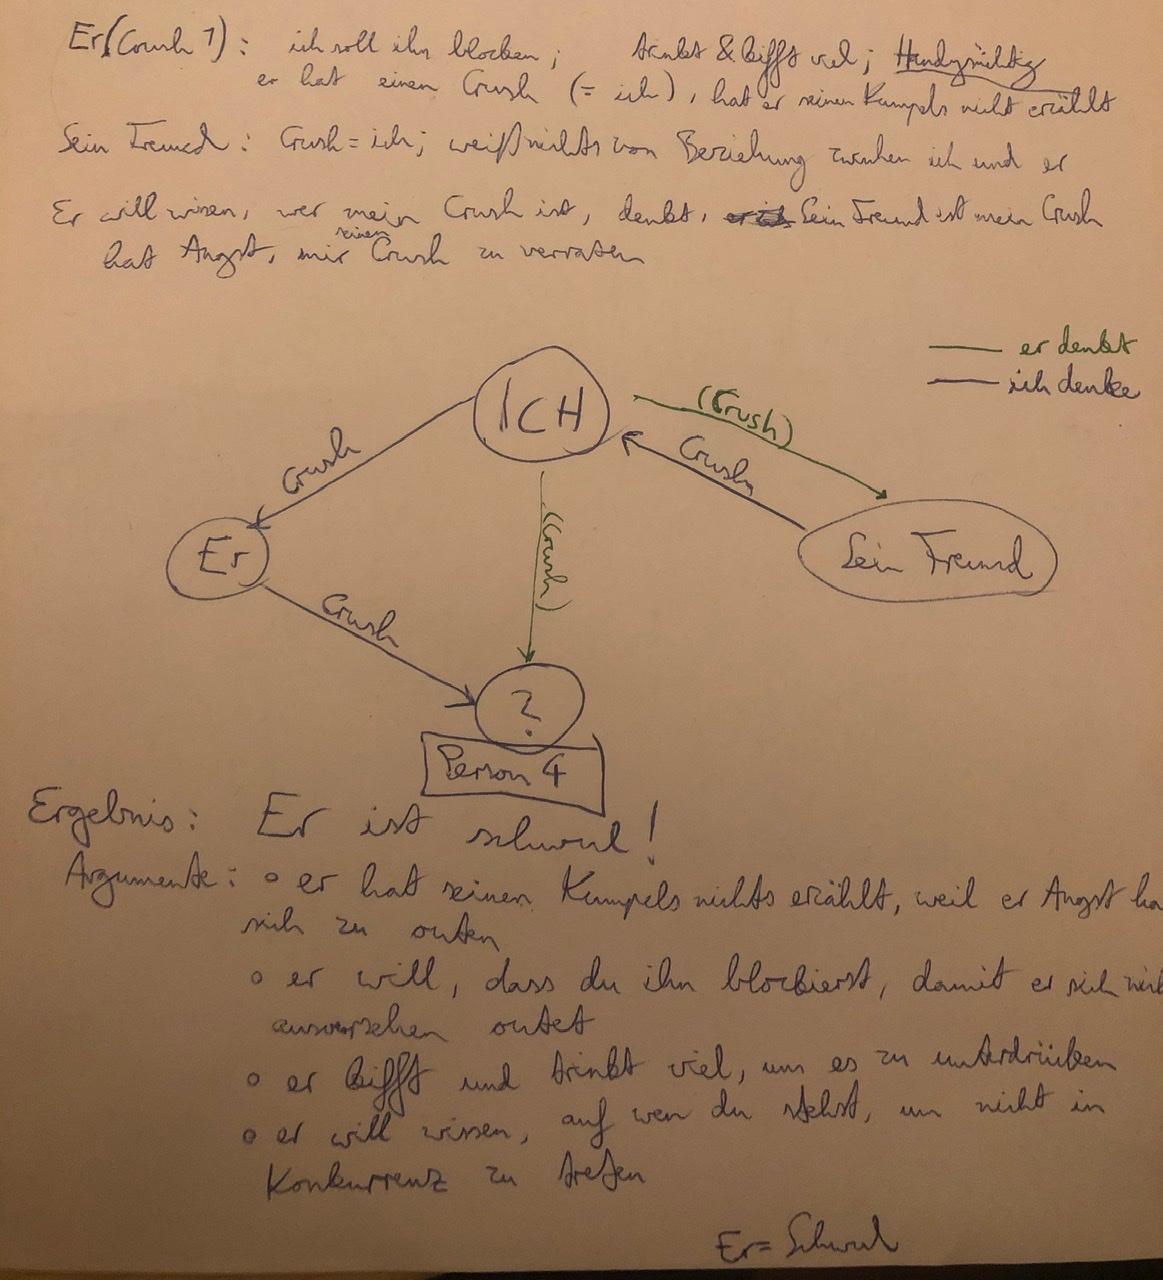 Er (Crush 1): ich soll ihn blocken; trinkt & kifft viel; Handysüchtig
er hat einen Crush (= ich), hat er seinen Kumpels nicht erzählt
Sein Freund: Crush = ich; weiß nichts von Beziehung zwischen ich und er
Er will wissen, wer mein Crush ist, denkt, Sein Freund ist mein Crush
hat Angst, mir seinen Crush zu verraten
er denkt
ich denke
ICH
(Crush)
Crush
Crush
(Crush)
Er
Sein Freund
Crush
?
Person 4
Ergebnis: Er ist schwul!
Argumente: ° er hat seinen Kumpels nichts erzählt, weil er Angst ha
sich zu outen
° er will, dass du ihn blockierst, damit er sich nich
ausversehen outet
° er kifft und trinkt viel, um es zu unterdrücken
° er will wissen, auf wen du stehst, um nicht in
Konkurrenz zu treten
Er = Schwul